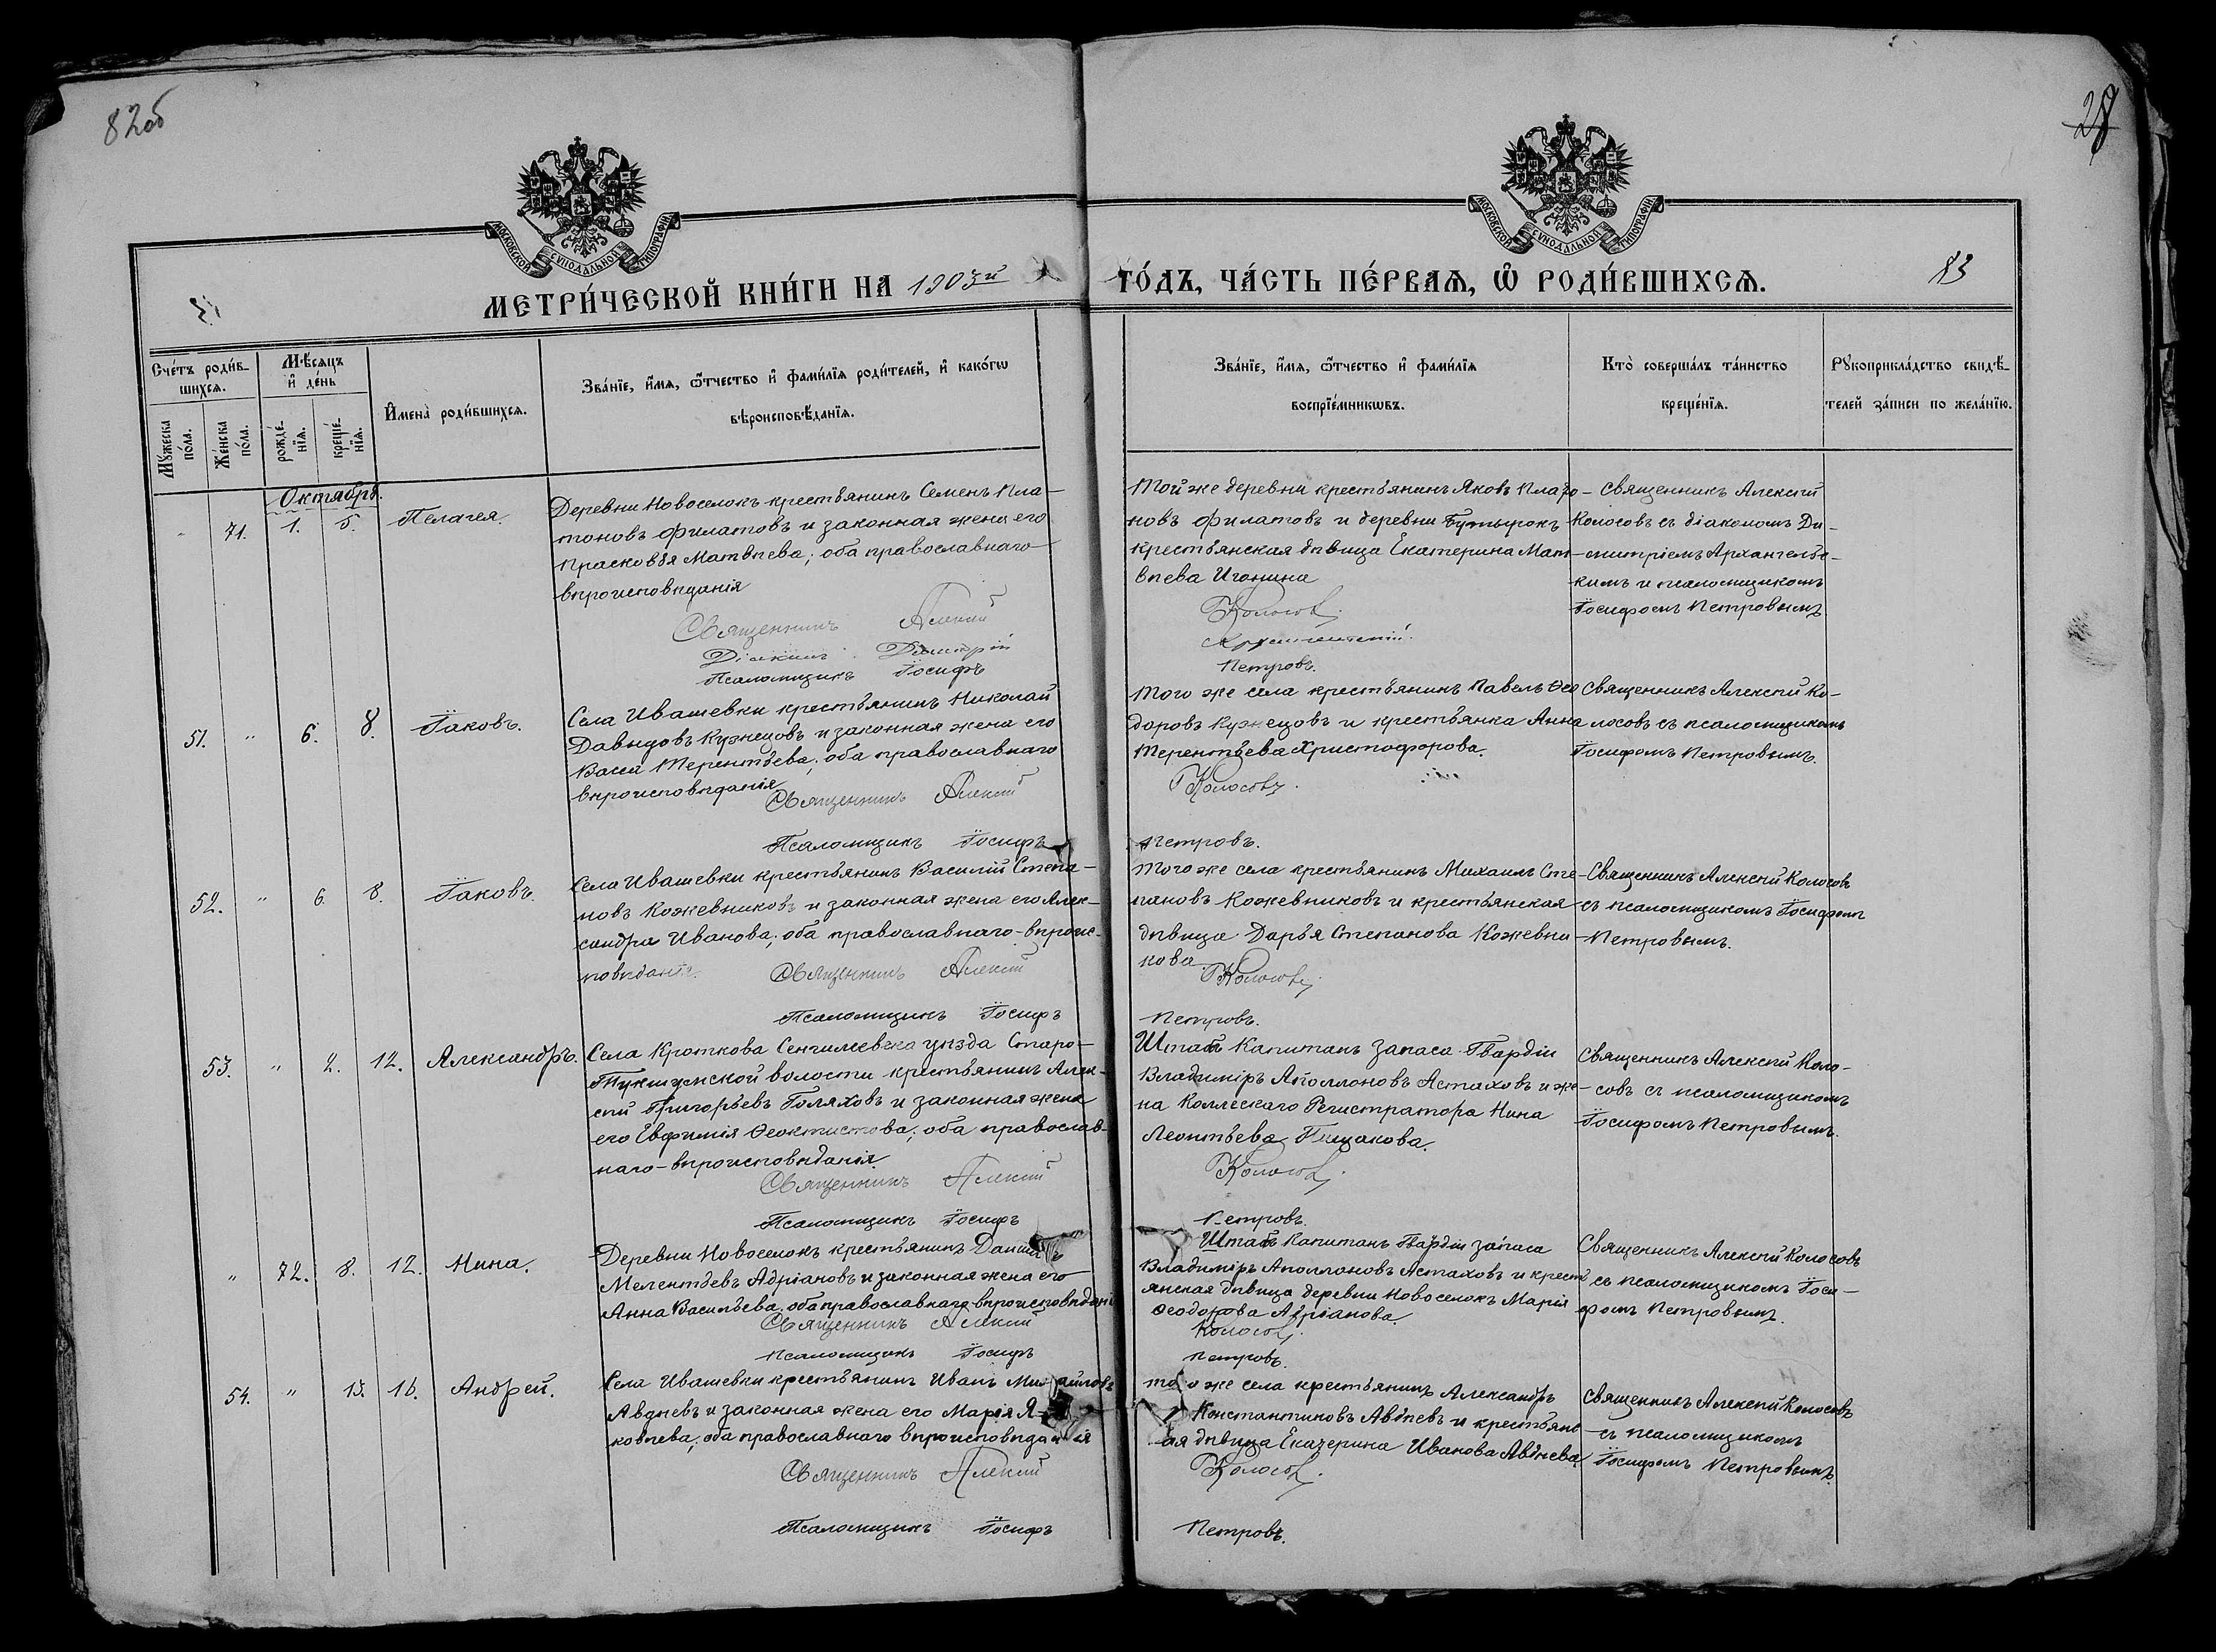 82об
28
МОСКОВСКОЙ СѴНОДАЛЬНОЙ ТИПОГРАФІИ
МОСКОВСКОЙ СѴНОДАЛЬНОЙ ТИПОГРАФІИ
МЕТРИ́ЧЕСКОЙ КНИ́ГИ НА 1903й
ГО́ДЪ, ЧА́СТЬ ПЕ́РВАѦ, Ѡ҆ РОДИ́ВШИХСѦ.
83
Сче́тъ роди́в-
шихсѧ.
Мѣ́сѧцъ
и҆ де́нь
И҆мена̀ роди́вшихсѧ.
Зва́нїе, и҆́мѧ, ѻ҆́тчество и҆ фами́лїѧ роди́телей, и҆ како́гѡ
вѣроисповѣ́данїѧ.
Мꙋ́жеска
по́ла.
Же́нска
по́ла.
рожде́-
нїѧ.
креще́-
нїѧ.
Зва́нїе, и҆́мѧ, ѻ҆́тчество и҆ фами́лїѧ
воспрїе́мникѡвъ.
Кто̀ соверша́лъ та́инство
креще́нїѧ.
Рꙋкоприкла́дство свидѣ́-
телей за́писи по жела́нїю.
Октябрь.
71. 1. 5. Пелагея.
Деревни Новоселокъ крестьянинъ Семенъ Пла-
тоновъ Филатовъ и законная жена его
Прасковья Матвѣева; оба православнаго
вѣроисповѣданія
Священникъ Алексій
Діаконъ Димитрій
Псаломщикъ Іосифъ
Той же деревни крестьянинъ Яковъ Плато-
новъ Филатовъ и деревни Бутырокъ
крестьянская дѣвица Екатерина Мат-
вѣева Игонина
Колосовъ.
Архангельскій.
Петровъ.
Священникъ Алексій
Колосовъ съ діакономъ Ди-
митріемъ Архангельс-
кимъ и псаломщикомъ
Іосифомъ Петровымъ
51. " 6. 8. Іаковъ.
Села Ивашевки крестьянинъ Николай
Давыдовъ Кузнецовъ и законная жена его
Васса Терентьева; оба православнаго
вѣроисповѣданія.
Священникъ Алексій
Псаломщикъ Іосифъ
Того же села крестьянинъ Павелъ Ѳео
доровъ Кузнецовъ и крестьянка Анна
Терентьева Христофорова.
Колосовъ.
Петровъ.
Священникъ Алексій Ко-
лосовъ съ псаломщикомъ
Іосифомъ Петровымъ.
52. " 6. 8. Іаковъ.
Села Ивашевки крестьянинъ Василій Степа-
новъ Кожевниковъ и законная жена его Алек-
сандра Иванова; оба православнаго-вѣроис-
повѣданія.
Священникъ Алексій
Псаломщикъ Іосифъ
Того же села крестьянинъ Михаилъ Сте-
пановъ Кожевниковъ и крестьянская
дѣвица Дарья Степанова Кожевни-
кова.
Колосовъ.
Петровъ.
Священникъ Алексій Колосовъ
съ псаломщикомъ Іосифомъ
Петровымъ.
53. " 2. 12. Александръ.
Села Кроткова Сенгилеевска уѣзда Старо-
Тукшумской волости крестьянинъ Алек-
сѣй Григорьевъ Голяховъ и законная жена
его Евфимія Ѳеоктистова; оба православ-
наго-вѣроисповѣданія.
Священникъ Алексій
Псаломщикъ Іосифъ
Штабъ Капитанъ Запаса Гвардіи
Владиміръ Аполлоновъ Астаховъ и же-
на Коллескаго Регистратора Нина
Леонтьева
Колосовъ.
Петровъ.
Священникъ Алексій Коло-
совъ съ псаломщикомъ
Іосифомъ Петровымъ.
" 72. 8. 12. Нина.
Деревни Новоселокъ крестьянинъ Даніилъ
Мелентьевъ Адріановъ и законная жена его
Анна Васильева; оба православнаго вѣроисповѣдані
Священникъ Алексій
Псаломщикъ Іосифъ
Штабъ Капитанъ Гвардіи запаса
Владиміръ Аполлоновъ Астаховъ и крестья
янская дѣвица деревни Новоселокъ Марія
Ѳеодорова Адріанова.
Колосовъ.
Петровъ.
Священникъ Алексій Колосовъ
съ псаломщикомъ Іоси-
фомъ Петровымъ.
54. " 15. 16. Андрей.
Села Ивашевки крестьянинъ Иванъ Михайловъ
Авдѣевъ и законная жена его Марія Я-
ковлева; оба православнаго вѣроисповѣданія
Священникъ Алексій
Псаломщикъ Іосифъ
того же села крестьянинъ Александръ
Константиновъ Авдѣевъ и крестьянс
ая дѣвица Екатерина Иванова Авдѣева
Колосовъ.
Петровъ.
Священникъ Алексій Колосовъ
съ псаломщикомъ
Іосифомъ Петровымъ.